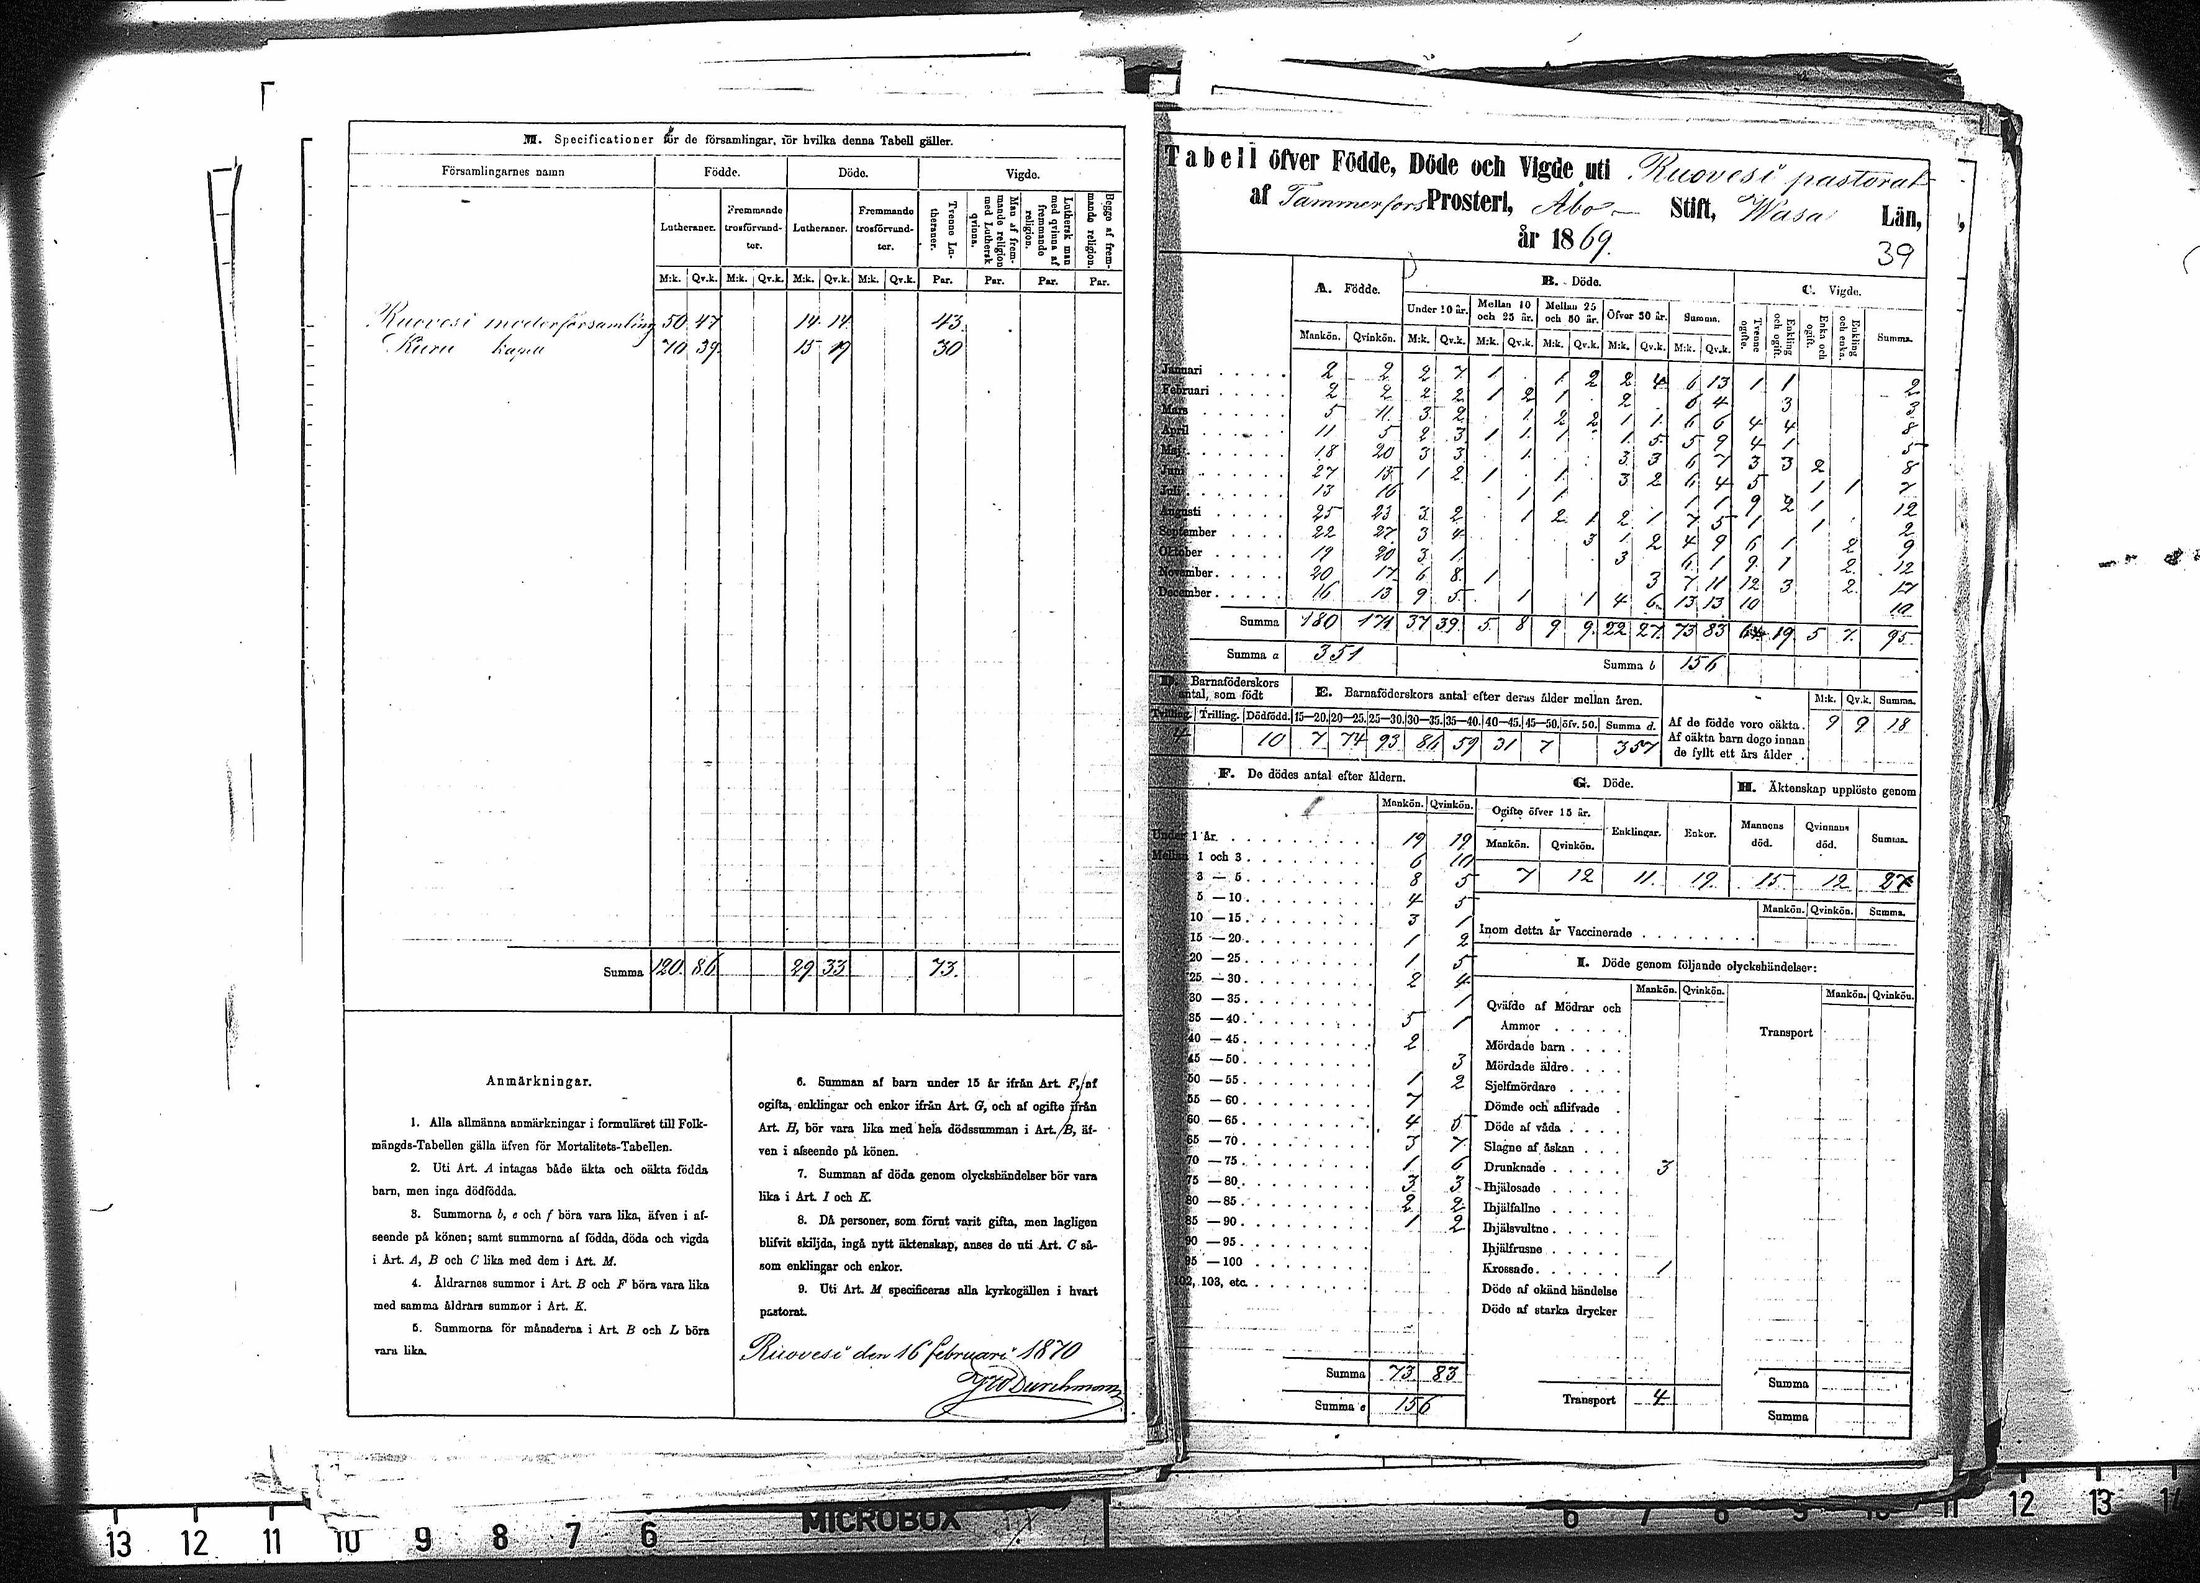 M. Specificationer för de församlingar, för hvilka denna Tabell gäller.
Församlingarnes namn Födde. Döde. Vigde.
Lutheraner. Fremmande trosförvandter. Lutheraner. Fremmande trosförvandter. Tvenne Lutheraner. Man af fremmande religion med Luthersk qvinna. Luthersk man med qvinna af fremmande religion. Begge af fremmande religion.
M:k. Qv.k. M:k. Qv.k. M:k. Qv.k. M:k. Qv.k. Par. Par. Par. Par.
Ruovesi moderförsamling 50 47 14 14 43
Kuru kapell 70 39 15 19 30
Summa 120 86 29 33 73.
Anmärkningar.
1. Alla allmänna anmärkningar i formuläret till Folk-
mängds-Tabellen gälla äfven för Mortalitets-Tabellen.
2. Uti Art. A intagas både äkta och oäkta födda
barn, men inga dödfödda.
3. Summorna b, e och f böra vara lika, äfven i af-
seende på könen; samt summorna af födda, döda och vigda
i Art. A, B och C lika med dem i Art. M.
4. Åldrarnes summor i Art. B och F böra vara lika
med samma åldrars summor i Art. K.
5. Summorna för månaderna i Art. B och L böra
vara lika.
6. Summan af barn under 15 år ifrån Art. F, af
ogifta, enklingar och enkor ifrån Art. G, och af ogifte ifrån
Art. H, bör vara lika med hela dödssumman i Art. B, äf-
ven i afseende på könen.
7. Summan af döda genom olyckshändelser bör vara
lika i Art. I och K.
8. Då personer, som förut varit gifta, men lagligen
blifvit skiljda, ingå nytt äktenskap, anses de uti Art. C så-
som enklingar och enkor.
9. Uti Art. M specificeras alla kyrkogällen i hvart
pastorat.
Ruovesi den 16 februari 1870
Durchman
Tabell öfver Födde, Döde och Vigde uti Ruovesi pastorat
af Tammerfors Prosteri, Åbo Stift, Wasa Län,
år 1869.
39
A. Födde. B. Döde. C. Vigde.
Under 10 år. Mellan 10 och 25 år. Mellan 25 och 50 år. Öfver 50 år. Summa. Tvenne ogifte. Enkling och ogift. Enka och ogift. Enkling och enka. Summa.
Mankön. Qvinkön. M:k. Qv.k. M:k. Qv.k. M:k. Qv.k. M:k. Qv.k. M:k. Qv.k.
Januari 2 2 2 7 1 1 2 2 4 6 13 1 1 2
Februari 2 2 2 2 1 2 1 2 6 4 3 3
Mars 5 11 3 2 1 2 2 1 1 6 6 4 4 8
April 11 5 2 3 1 1 1 1 5 5 9 4 1 5
Maj 18 20 3 3 1 3 3 6 7 3 3 2 8
Juni 27 15 1 2 1 1 3 2 6 4 5 1 1 7
Juli 13 16 1 1 1 1 9 2 1 12
Augusti 25 23 3 2 1 2 1 2 1 7 5 1 1 2
September 22 27 3 4 3 1 2 4 9 6 1 2 9
Oktober 19 20 3 1 3 6 1 9 1 2 12
November 20 17 6 8 1 3 7 11 12 3 2 17
December 16 13 9 5 1 1 4 6 13 13 10 10
Summa 180 171 37 39 5 8 9 9 22 27 73 83 64 19 5 7 95
Summa a 351 Summa b 156
D. Barnaföderskors antal, som födt
E. Barnaföderskors antal efter deras ålder mellan åren.
M:k. Qv.k. Summa.
Trilling. Dödfödd. 15—20. 20—25. 25—30. 30—35. 35—40. 40—45. 45—50. öfv. 50. Summa d.
4 10 7 74 93 86 59 31 7 357
Af de födde voro oäkta. 9 9 18
Af oäkta barn dogo innan
de fyllt ett års ålder.
F. De dödes antal efter åldern.
Mankön. Qvinkön.
Under 1 år. 19 19
Mellan 1 och 3 6 10
3 — 5 8 5
5 — 10 4 5
10 — 15 3 1
15 — 20 1 2
20 — 25 1 5
25 — 30 2 4
30 — 35 1
35 — 40 5 1
40 — 45 2
45 — 50 3
50 — 55 1 2
55 — 60 7
60 — 65 4 5
65 — 70 3 7
70 — 75 1 6
75 — 80 3 3
80 — 85 2 2
85 — 90 1 2
90 — 95
95 — 100
102, 103, etc.
Summa 73 83
Summa e 156
G. Döde.
Ogifte öfver 15 år. Enklingar. Enkor.
Mankön. Qvinkön.
7 12 11 19
H. Äktenskap upplöste genom
Mannens död. Qvinnans död. Summa.
15 12 27
Mankön. Qvinkön. Summa.
Inom detta år Vaccinerade
I. Döde genom följande olyckshändelser:
Mankön. Qvinkön. Mankön. Qvinkön.
Qväfde af Mödrar och
Ammor
Transport
Mördade barn
Mördade äldre
Sjelfmördare
Dömde och aflifvade
Döde af våda
Slagne af åskan
Drunknade 3
Ihjälosade
Ihjälfallne
Ihjälsvultne
Ihjälfrusne
Krossade 1
Döde af okänd händelse
Döde af starka drycker
Transport 4
Summa
Summa
13 12 11 10 9 8 7 6 MICROBOX 6 7 8 9 10 11 12 13 14